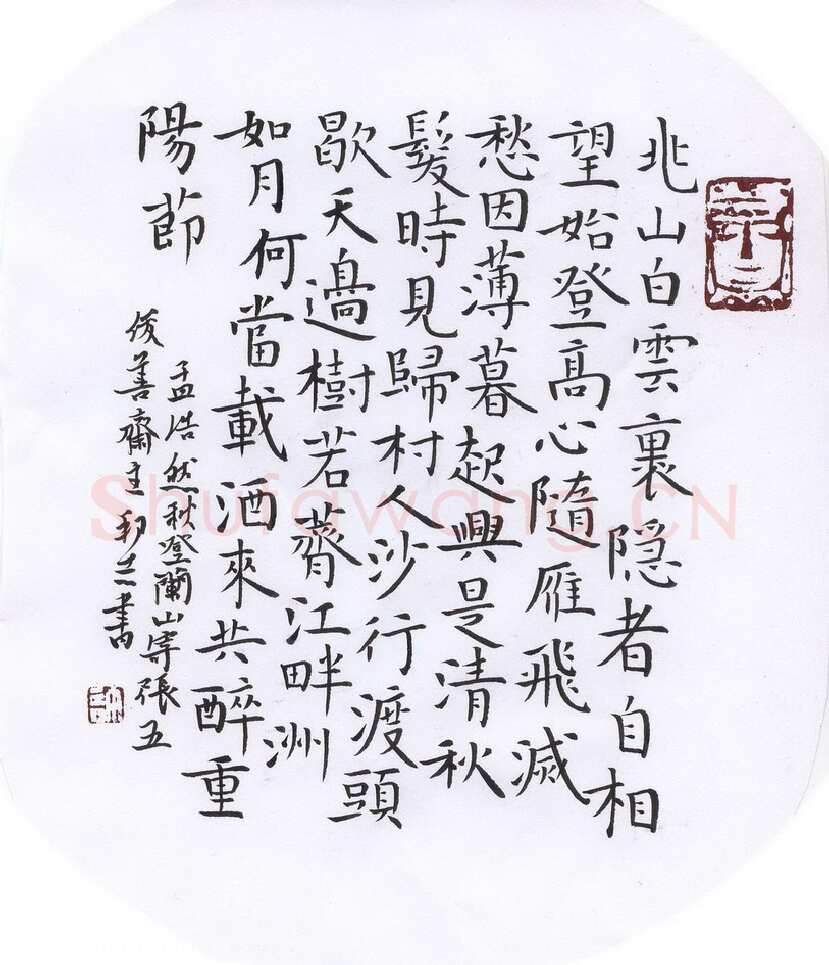 北山白雲裏隐者自相
望始登高心隨雁飛滅
愁因薄暮起興是清秋
髮時見歸村人沙行渡頭
歇天邊樹若薺江畔洲
如月何當載酒來共醉重
陽莭
孟浩然秋登蘭山寄張五
善齋主書
Shufawang.CN